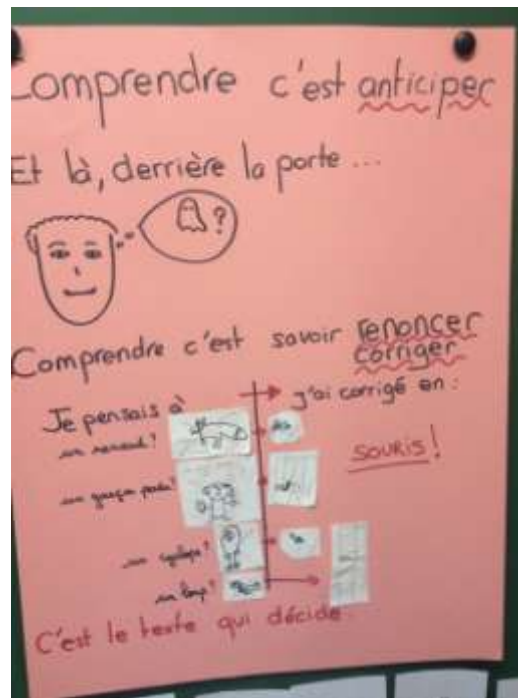 Comprendre c'est anticiper
Et là, derrière la porte ...
?
Comprendre c'est savoir renoncer
corriger
Je pensais à
j'ai corrigé en :
un renard ?
SOURIS !
un garçon perdu ?
un cyclope ?
un loup ?
C'est le texte qui décide